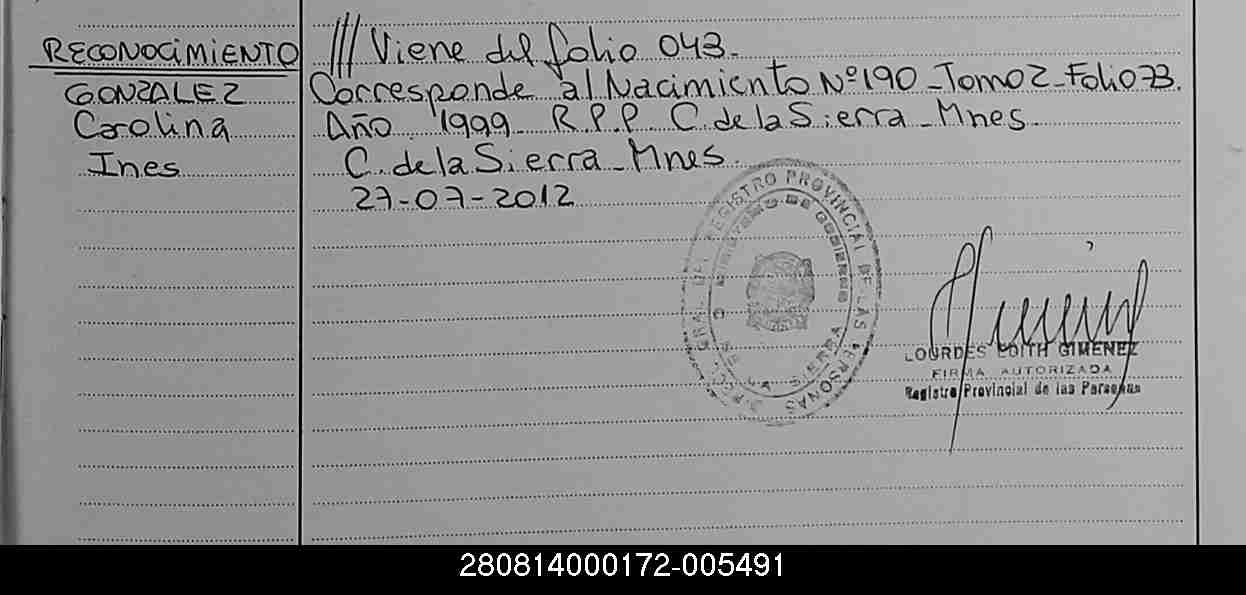 RECONOCIMIENTO
GONZALEZ
Carolina
Ines
/// Viene del folio 043.
Corresponde al Nacimiento Nº 190 - Tomo 2 - Folio 73.
Año 1999 R.P.P. C. de la Sierra - Mnes.
C. de la Sierra - Mnes.
27-07-2012
REGISTRO PROVINCIAL DE LAS PERSONAS
MINISTERIO DE GOBIERNO
LOURDES EDITH GIMENEZ
FIRMA AUTORIZADA
Registro Provincial de las Personas
280814000172-005491